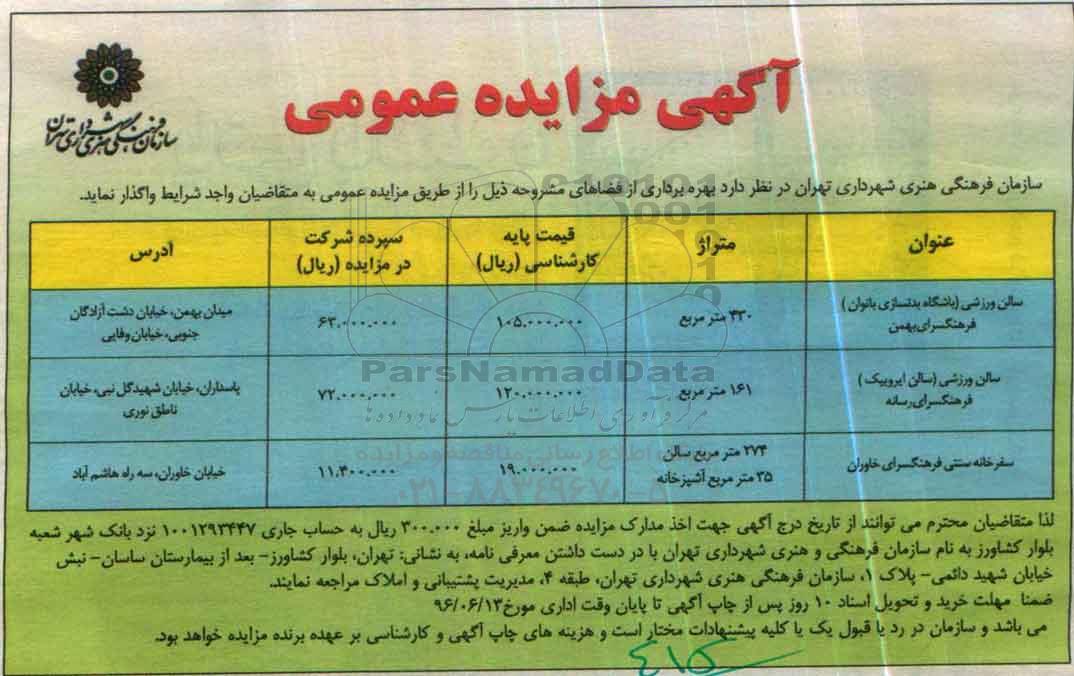 آگهی مزایده عمومی
سازمان فرهنگی هنری شهرداری تهران
سازمان فرهنگی هنری شهرداری تهران در نظر دارد بهره برداری از فضاهای مشروحه ذیل را از طریق مزایده عمومی به متقاضیان واجد شرایط واگذار نماید.
عنوان متراژ قیمت پایه کارشناسی (ریال) سپرده شرکت در مزایده (ریال) آدرس
سالن ورزشی (باشگاه بدنسازی بانوان ) فرهنگسرای بهمن ۴۳۰ متر مربع ۱۰۵.۰۰۰.۰۰۰ ۶۳.۰۰۰.۰۰۰ میدان بهمن، خیابان دشت آزادگان جنوبی، خیابان وفایی
سالن ورزشی (سالن ایروبیک ) فرهنگسرای رسانه ۱۶۱ متر مربع ۱۲۰.۰۰۰.۰۰۰ ۷۲.۰۰۰.۰۰۰ پاسداران، خیابان شهیدگل نبی، خیابان ناطق نوری
سفرخانه سنتی فرهنگسرای خاوران ۲۷۴ متر مربع سالن ۳۵ متر مربع آشپزخانه ۱۹.۰۰۰.۰۰۰ ۱۱.۴۰۰.۰۰۰ خیابان خاوران، سه راه هاشم آباد
ParsNamadData
مرکز فرآوری اطلاعات پارس نماد داده ها
اطلاع رسانی مناقصه و مزایده
۰۲۱-۸۸۳۴۹۶۷۰-۵
لذا متقاضیان محترم می توانند از تاریخ درج آگهی جهت اخذ مدارک مزایده ضمن واریز مبلغ ۳۰۰.۰۰۰ ریال به حساب جاری ۱۰۰۱۲۹۳۴۴۷ نزد بانک شهر شعبه
بلوار کشاورز به نام سازمان فرهنگی و هنری شهرداری تهران با در دست داشتن معرفی نامه، به نشانی: تهران، بلوار کشاورز- بعد از بیمارستان ساسان- نبش
خیابان شهید دائمی- پلاک ۱، سازمان فرهنگی هنری شهرداری تهران، طبقه ۴، مدیریت پشتیبانی و املاک مراجعه نمایند.
ضمنا مهلت خرید و تحویل اسناد ۱۰ روز پس از چاپ آگهی تا پایان وقت اداری مورخ ۹۶/۰۶/۱۳
می باشد و سازمان در رد یا قبول یک یا کلیه پیشنهادات مختار است و هزینه های چاپ آگهی و کارشناسی بر عهده برنده مزایده خواهد بود.